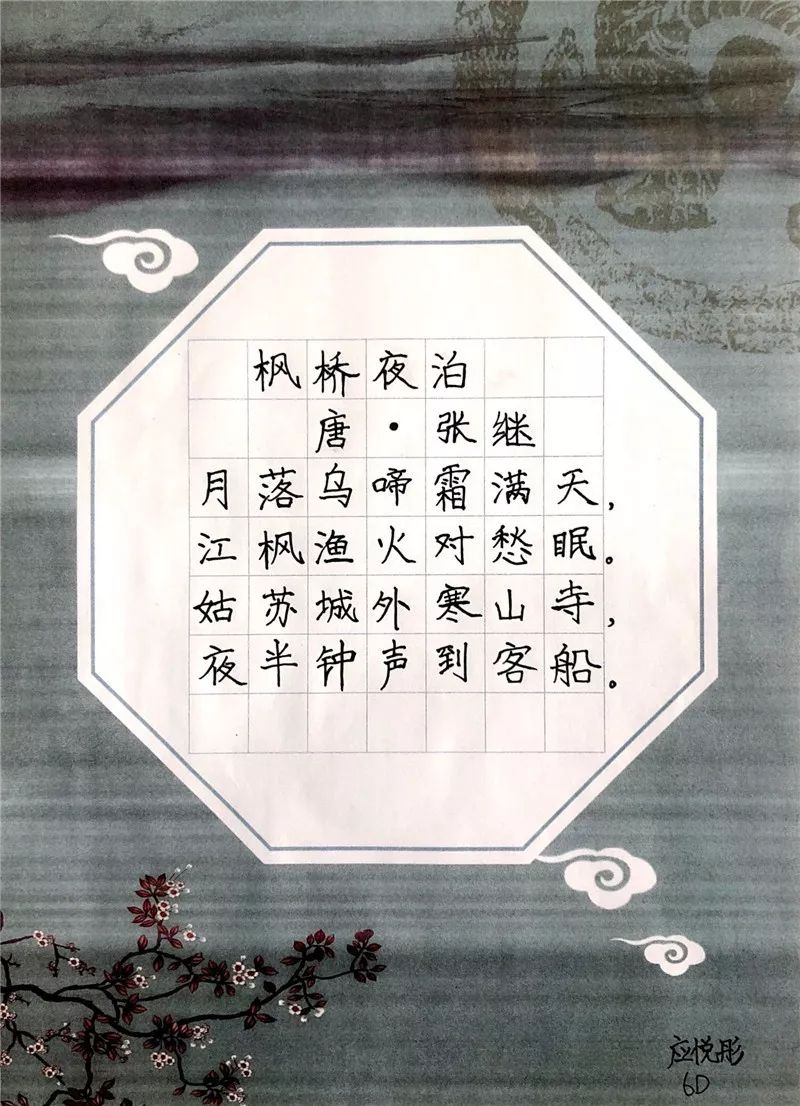 枫桥夜泊
唐·张继
月落乌啼霜满天，
江枫渔火对愁眠。
姑苏城外寒山寺，
夜半钟声到客船。
应悦彤
6D